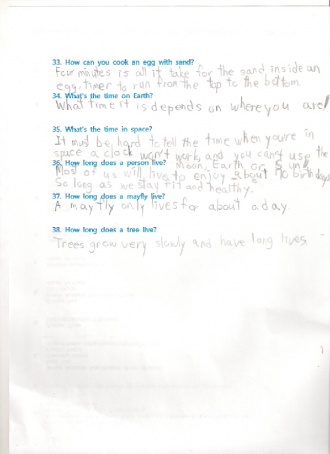 33. How can you cook an egg with sand?
Four minutes is all it take for the sand inside an
egg timer to run from the top to the bottom
34. What's the time on Earth?
What time it is depends on where you are!
35. What's the time in space?
It must be hard to tell the time when you're in
space a clock won't work and you can't use the
Moon, Earth or Sun
36. How long does a person live?
Most of us will live to enjoy about 70 birthdays
So long as we stay fit and healthy.
37. How long does a mayfly live?
A mayfly only lives for about a day.
38. How long does a tree live?
Trees grow very slowly and have long lives